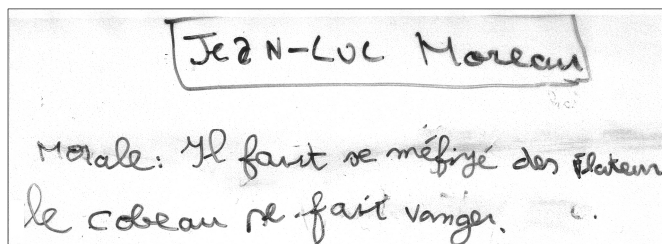 JEAN-LUC Moreau
Morale: Il faut se méfiyé des flateur
le cobeau se fait vanger.